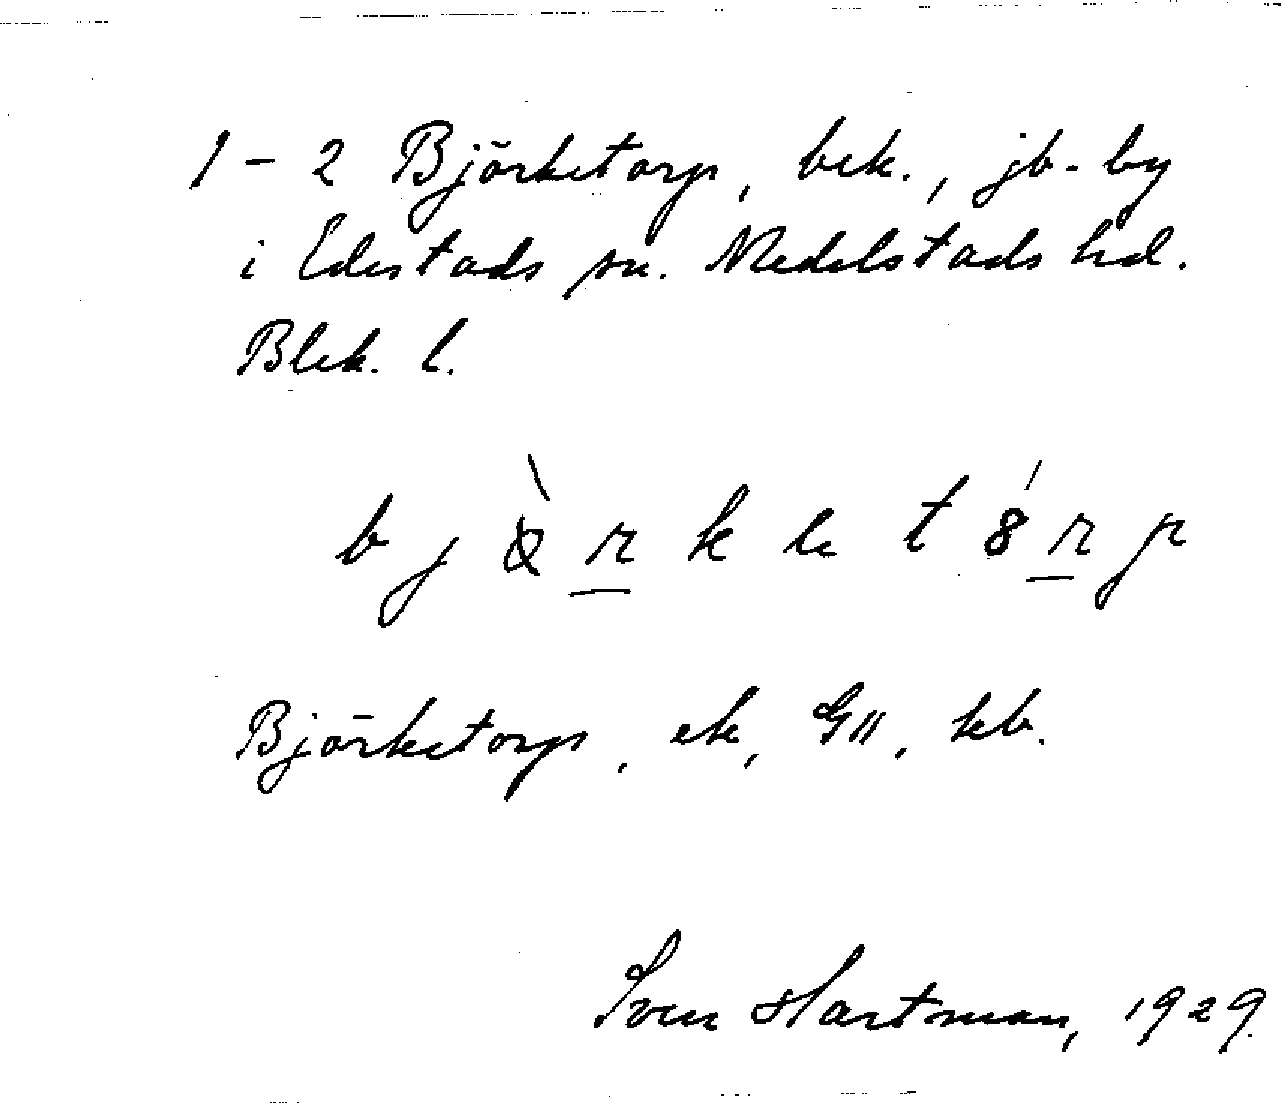 1-2 Björketorp, bek., jb-by
i Edestads sn. Medelstads hd.
Blek. l.
Björketorp, ek, GII, kb.
Sven Hartman, 1929.